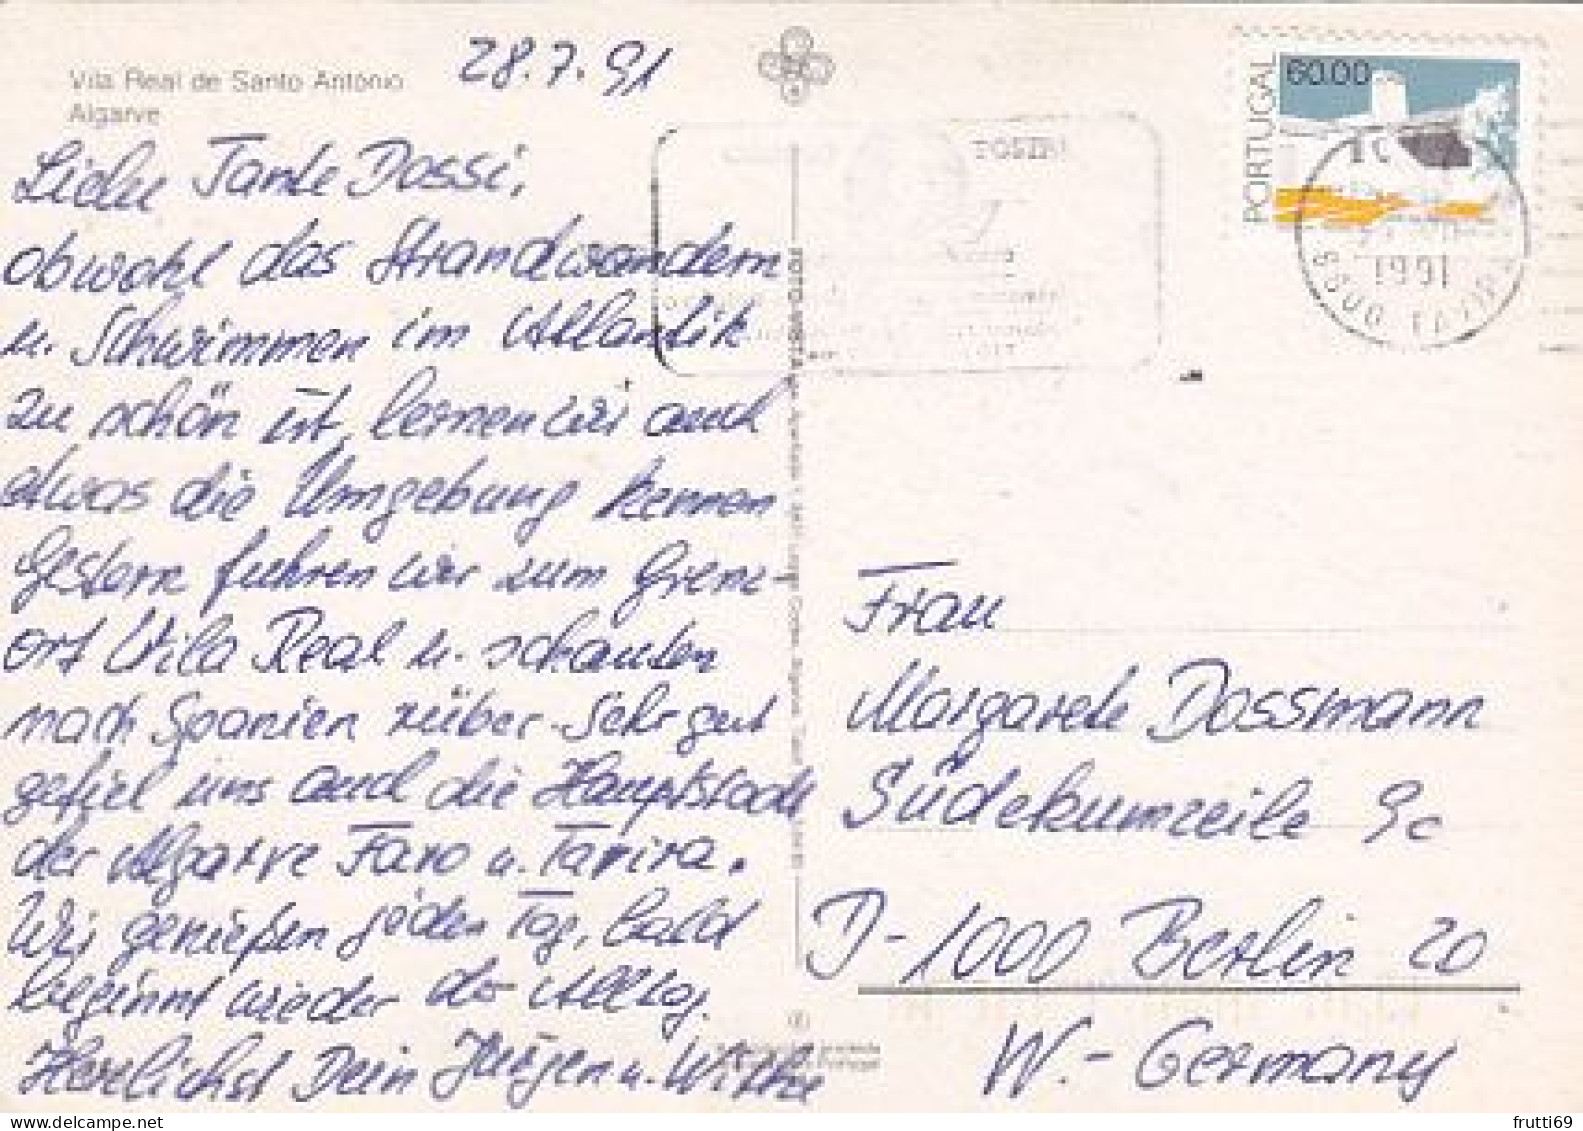 Vila Real de Santo António
Algarve
28.7.91
Liebe Tante Dossi,
obwohl das Strandwandern
u. Schwimmen im Atlantik
zu schön ist, lernen wir auch
etwas die Umgebung kennen
Gestern fuhren wir zum Grenz-
ort Vila Real u. schauten
nach Spanien rüber. Sehr gut
gefiel uns auch die Hauptstadt
der Algarve Faro u. Tavira.
Wir genießen jeden Tag, bald
beginnt wieder der Alltag.
Herzlichst Dein Jürgen u.
FOTO-VISTA
PORTUGAL
60.00
1991
Frau
Margarete Dossmann
Südekumzeile 9c
D-1000 Berlin 20
W.-Germany
frutti69